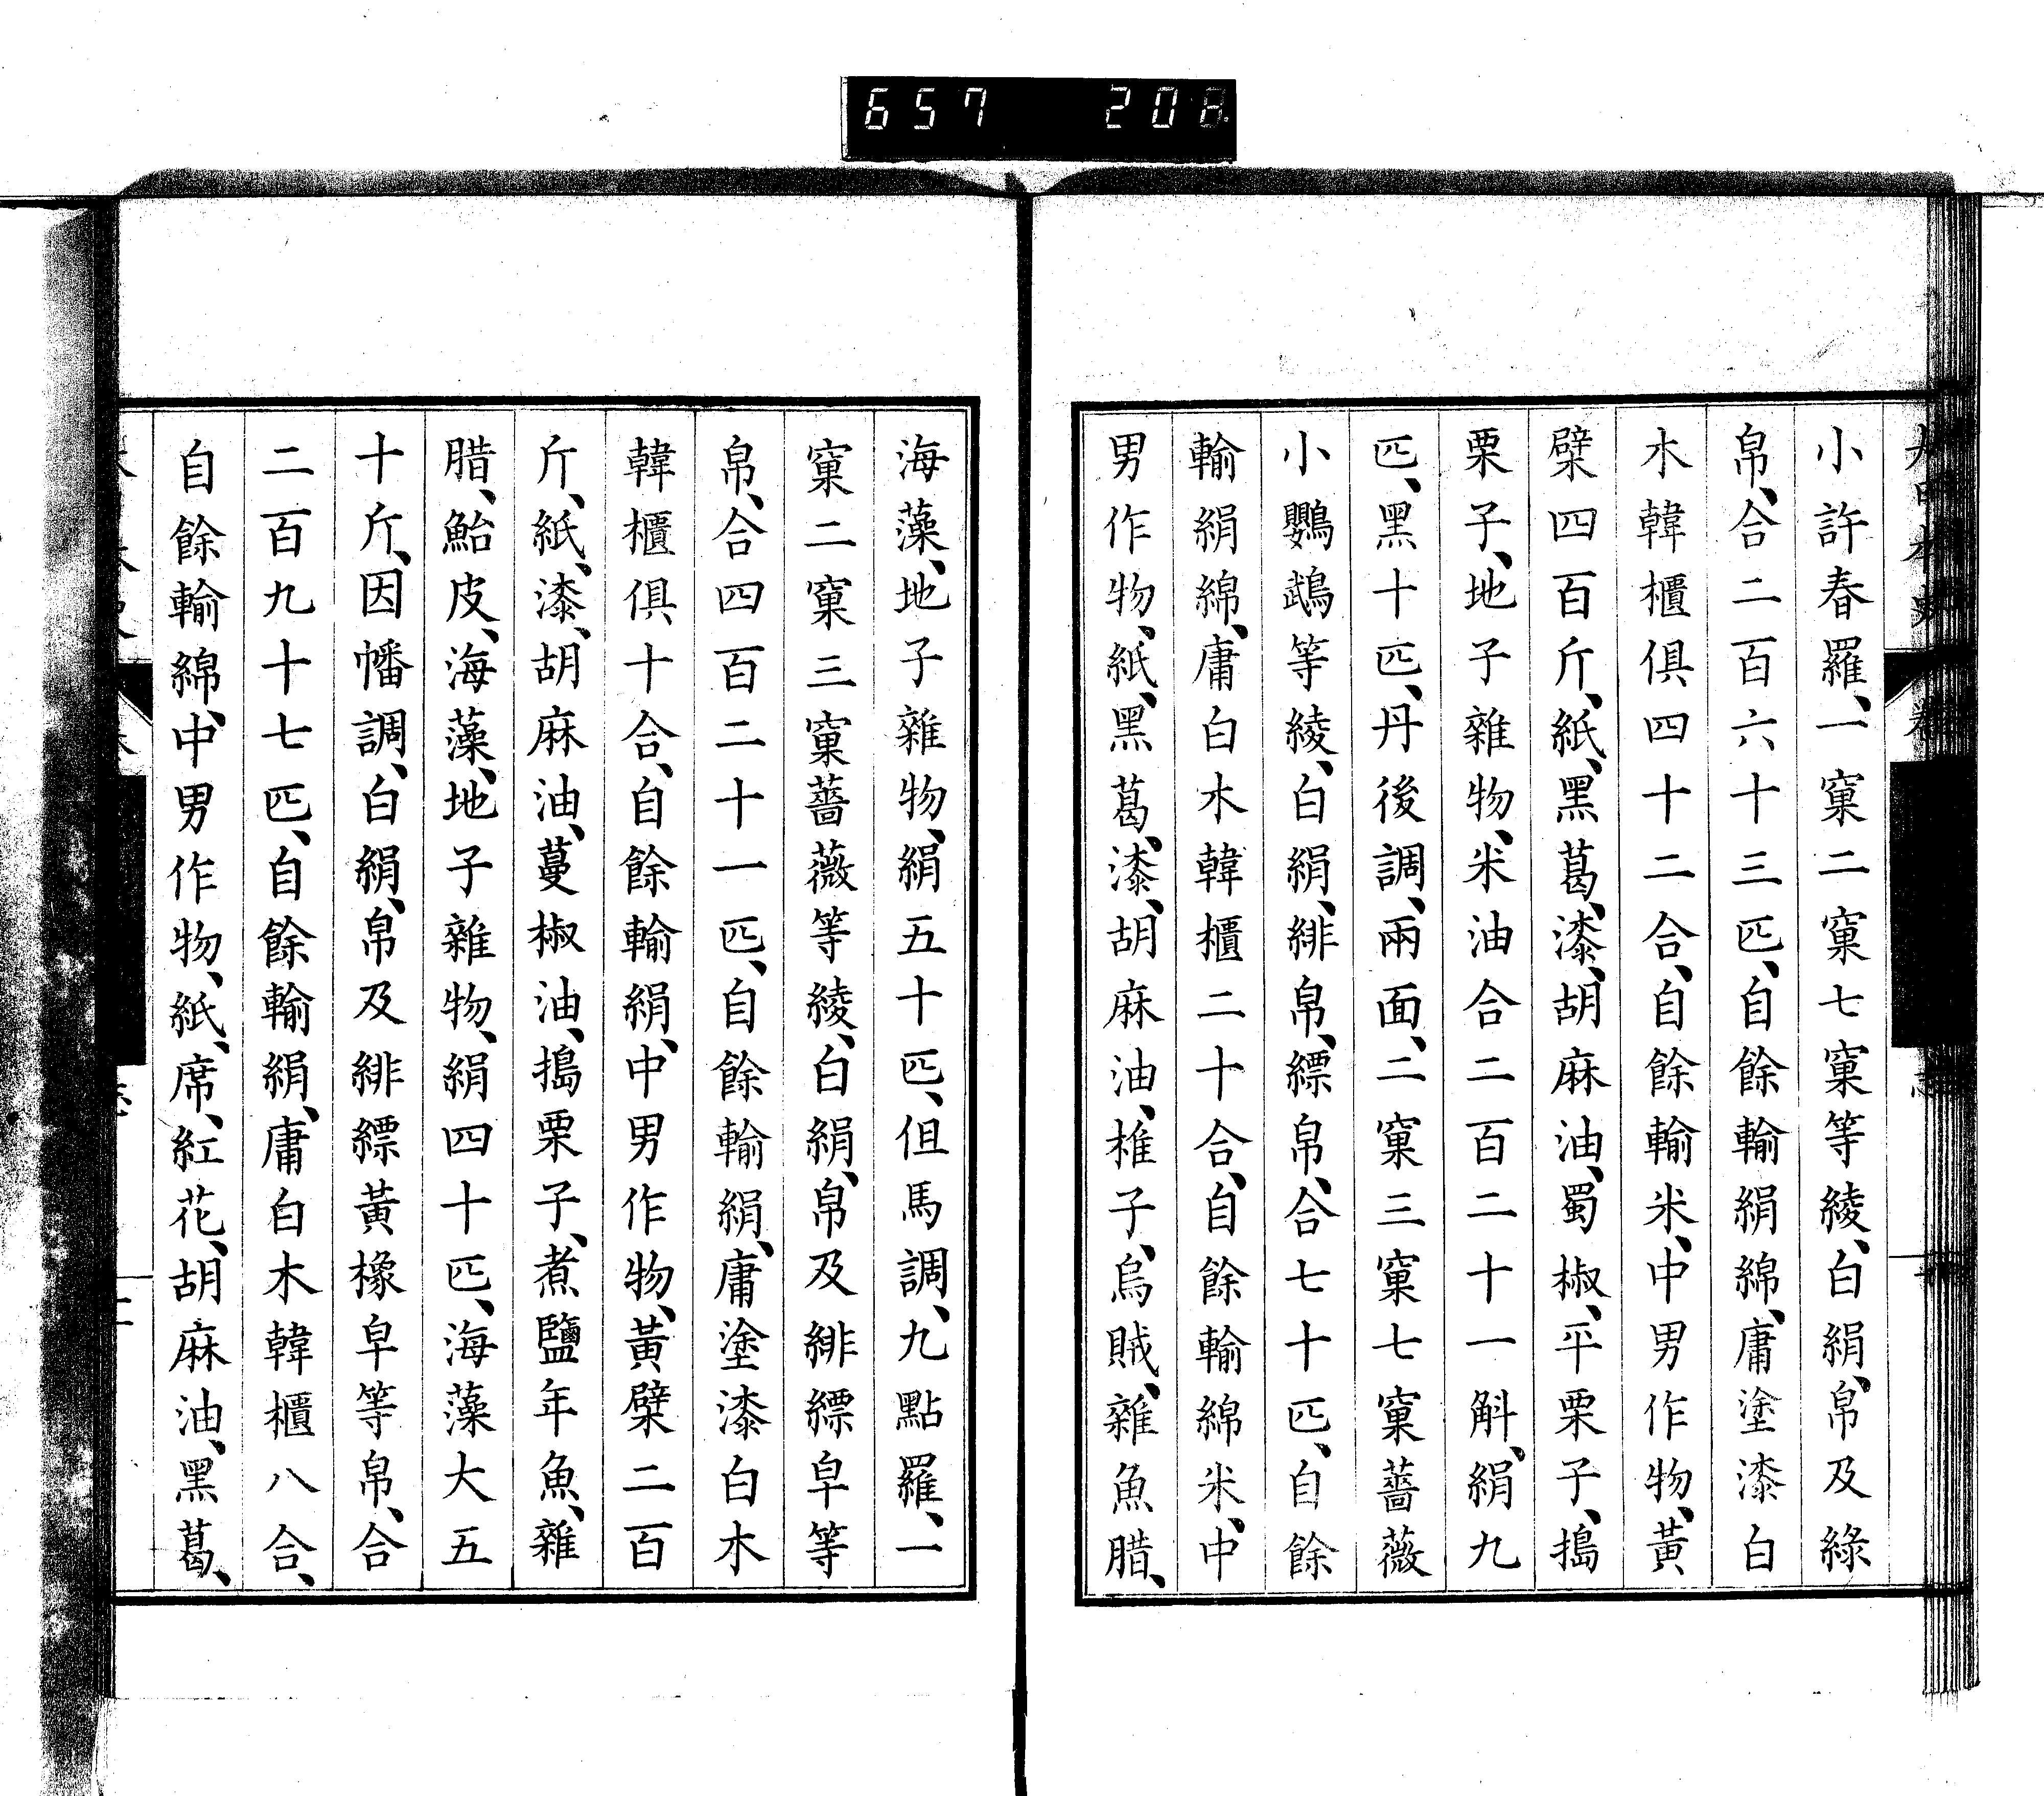 657 208
小許春羅、一窠二窠七窠等綾、白絹、帛及綠
帛、合二百六十三匹、自餘輸絹綿、庸塗漆白
木韓櫃俱四十二合、自餘輸米、中男作物、黃
檗四百斤、紙、黑葛、漆、胡麻油、蜀椒、平栗子、搗
栗子、地子雜物、米油合二百二十一斛、絹九
匹、黑十匹、丹後調、兩面、二窠三窠七窠薔薇
小鸚鵡等綾、白絹、緋帛、縹帛、合七十匹、自餘
輸絹綿、庸白木韓櫃二十合、自餘輸綿米、中
男作物、紙、黑葛、漆、胡麻油、椎子、烏賊、雜魚腊、
海藻、地子雜物、絹五十匹、但馬調、九點羅、一
窠二窠三窠薔薇等綾、白絹、帛及緋縹皁等
帛、合四百二十一匹、自餘輸絹、庸塗漆白木
韓櫃俱十合、自餘輸絹、中男作物、黃檗二百
斤、紙、漆、胡麻油、蔓椒油、搗栗子、煮鹽年魚、雜
腊、鮐皮、海藻、地子雜物、絹四十匹、海藻大五
十斤、因幡調、白絹、帛及緋縹黃橡皁等帛、合
二百九十七匹、自餘輸絹、庸白木韓櫃八合、
自餘輸綿、中男作物、紙、席、紅花、胡麻油、黑葛、